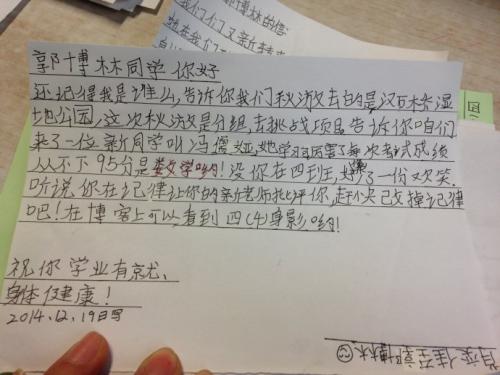 郭博林同学你好
还记得我是谁么,告诉你我们秋游去的是汉石桥湿
地公园,这次秋游是分组,去挑战项目告诉你咱们
来了一位新同学叫冯
她学习可厉害了每次考试成绩
从不下95分是数学哟!没你在四班,好像少了一份欢笑.
听说你在记律让你的新老师批评你,赶快改掉记律
吧!在博客上可以看到四(4)身影哟!
祝你学业有就、
身体健康!
2014.12.19日写
至郭博林
我们们又新